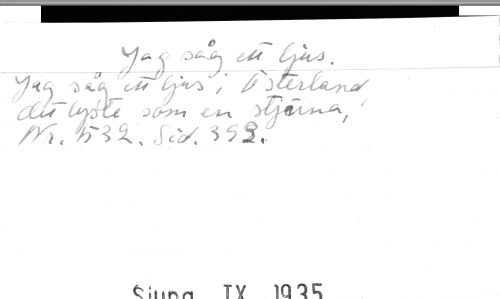 Jag såg ett ljus.
Jag såg ett ljus i Österland,
det lyste som en stjärna,
Nr. 532. Sid. 392.
Sjung IX 1935